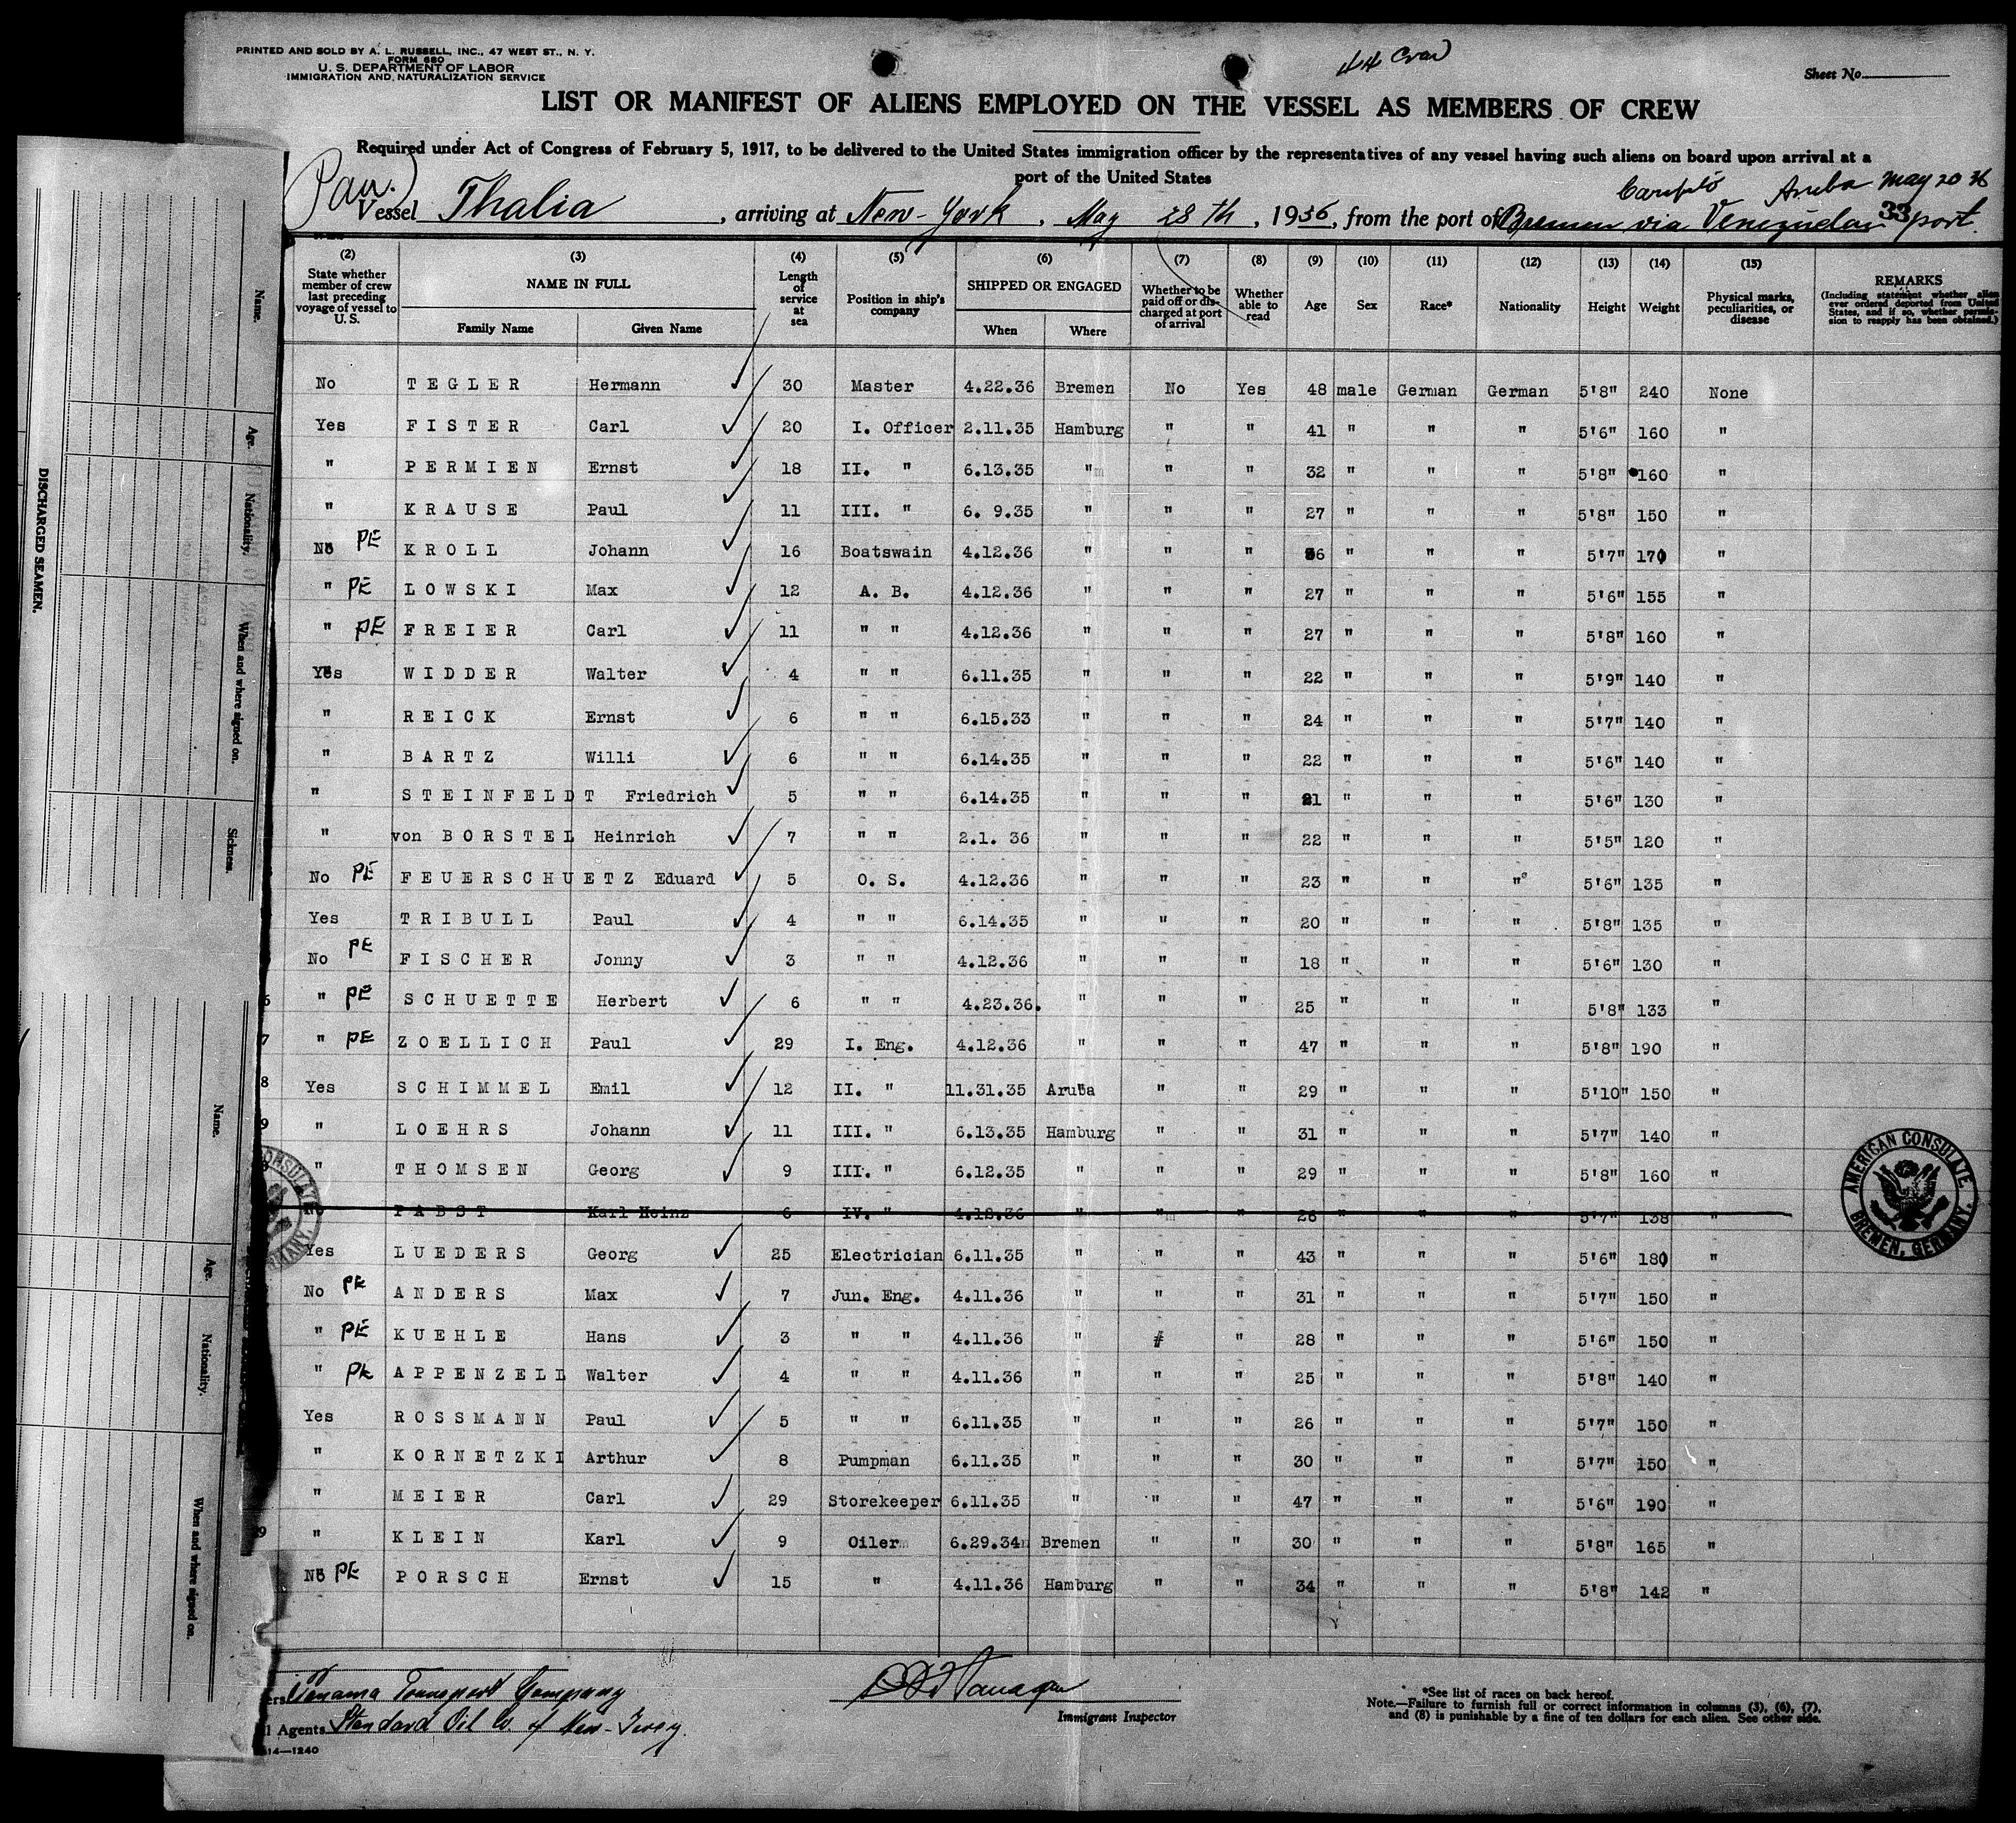 PRINTED AND SOLD BY A. L. RUSSELL, INC., 47 WEST ST., N. Y.
FORM 680
U. S. DEPARTMENT OF LABOR
IMMIGRATION AND NATURALIZATION SERVICE
44 Crew
Sheet No.
LIST OR MANIFEST OF ALIENS EMPLOYED ON THE VESSEL AS MEMBERS OF CREW
Required under Act of Congress of February 5, 1917, to be delivered to the United States immigration officer by the representatives of any vessel having such aliens on board upon arrival at a
port of the United States
(Pan.)
Caripito Aruba May 20 36
Vessel Thalia, arriving at New-York, May 28th, 1936, from the port of Bremen via Venezuelan port.
33
(2) (3) (4) (5) (6) (7) (8) (9) (10) (11) (12) (13) (14) (15)
State whether member of crew last preceding voyage of vessel to U. S. NAME IN FULL Family Name Given Name Length of service at sea Position in ship's company SHIPPED OR ENGAGED When Where Whether to be paid off or discharged at port of arrival Whether able to read Age Sex Race* Nationality Height Weight Physical marks, peculiarities, or disease REMARKS (Including statement whether alien ever ordered deported from United States, and if so, whether permission to reapply has been obtained.)
No TEGLER Hermann 30 Master 4.22.36 Bremen No Yes 48 male German German 5'8" 240 None
Yes FISTER Carl 20 I. Officer 2.11.35 Hamburg " " 41 " " " 5'6" 160 "
" PERMIEN Ernst 18 II. " 6.13.35 " " " 32 " " " 5'8" 160 "
" KRAUSE Paul 11 III. " 6. 9.35 " " " 27 " " " 5'8" 150 "
No PE KROLL Johann 16 Boatswain 4.12.36 " " " 36 " " " 5'7" 170 "
" PE LOWSKI Max 12 A. B. 4.12.36 " " " 27 " " " 5'6" 155 "
" PE FREIER Carl 11 " " 4.12.36 " " " 27 " " " 5'8" 160 "
Yes WIDDER Walter 4 " " 6.11.35 " " " 22 " " " 5'9" 140 "
" REICK Ernst 6 " " 6.15.33 " " " 24 " " " 5'7" 140 "
" BARTZ Willi 6 " " 6.14.35 " " " 22 " " " 5'6" 140 "
" STEINFELDT Friedrich 5 " " 6.14.35 " " " 21 " " " 5'6" 130 "
" von BORSTEL Heinrich 7 " " 2.1. 36 " " " 22 " " " 5'5" 120 "
No PE FEUERSCHUETZ Eduard 5 O. S. 4.12.36 " " " 23 " " " 5'6" 135 "
Yes TRIBULL Paul 4 " " 6.14.35 " " " 20 " " " 5'8" 135 "
No PE FISCHER Jonny 3 " " 4.12.36 " " " 18 " " " 5'6" 130 "
" PE SCHUETTE Herbert 6 " " 4.23.36. " " " 25 " " " 5'8" 133 "
7 " PE ZOELLICH Paul 29 I. Eng. 4.12.36 " " " 47 " " " 5'8" 190 "
8 Yes SCHIMMEL Emil 12 II. " 11.31.35 Aruba " " 29 " " " 5'10" 150 "
9 " LOEHRS Johann 11 III. " 6.13.35 Hamburg " " 31 " " " 5'7" 140 "
" THOMSEN Georg 9 III. " 6.12.35 " " " 29 " " " 5'8" 160 "
No PABST Karl Heinz 6 IV. " 4.12.36 " " " 26 " " " 5'7" 138 "
Yes LUEDERS Georg 25 Electrician 6.11.35 " " " 43 " " " 5'6" 180 "
No PE ANDERS Max 7 Jun. Eng. 4.11.36 " " " 31 " " " 5'7" 150 "
" PE KUEHLE Hans 3 " " 4.11.36 " " " 28 " " " 5'6" 150 "
" PE APPENZELL Walter 4 " " 4.11.36 " " " 25 " " " 5'8" 140 "
Yes ROSSMANN Paul 5 " " 6.11.35 " " " 26 " " " 5'7" 150 "
" KORNETZKI Arthur 8 Pumpman 6.11.35 " " " 30 " " " 5'7" 150 "
" MEIER Carl 29 Storekeeper 6.11.35 " " " 47 " " " 5'6" 190 "
9 " KLEIN Karl 9 Oiler 6.29.34 Bremen " " 30 " " " 5'8" 165 "
No PE PORSCH Ernst 15 " 4.11.36 Hamburg " " 34 " " " 5'8" 142 "
AMERICAN CONSULATE
BREMEN, GERMANY.
Panama Transport Company
Agents Standard Oil Co of New-Jersey.
14—1240
Immigrant Inspector
*See list of races on back hereof.
Note.—Failure to furnish full or correct information in columns (3), (6), (7),
and (8) is punishable by a fine of ten dollars for each alien. See other side.
DISCHARGED SEAMEN.
Name.
Age.
Nationality.
When and where signed on.
Sickness.
Name.
Age.
Nationality.
When and where signed on.